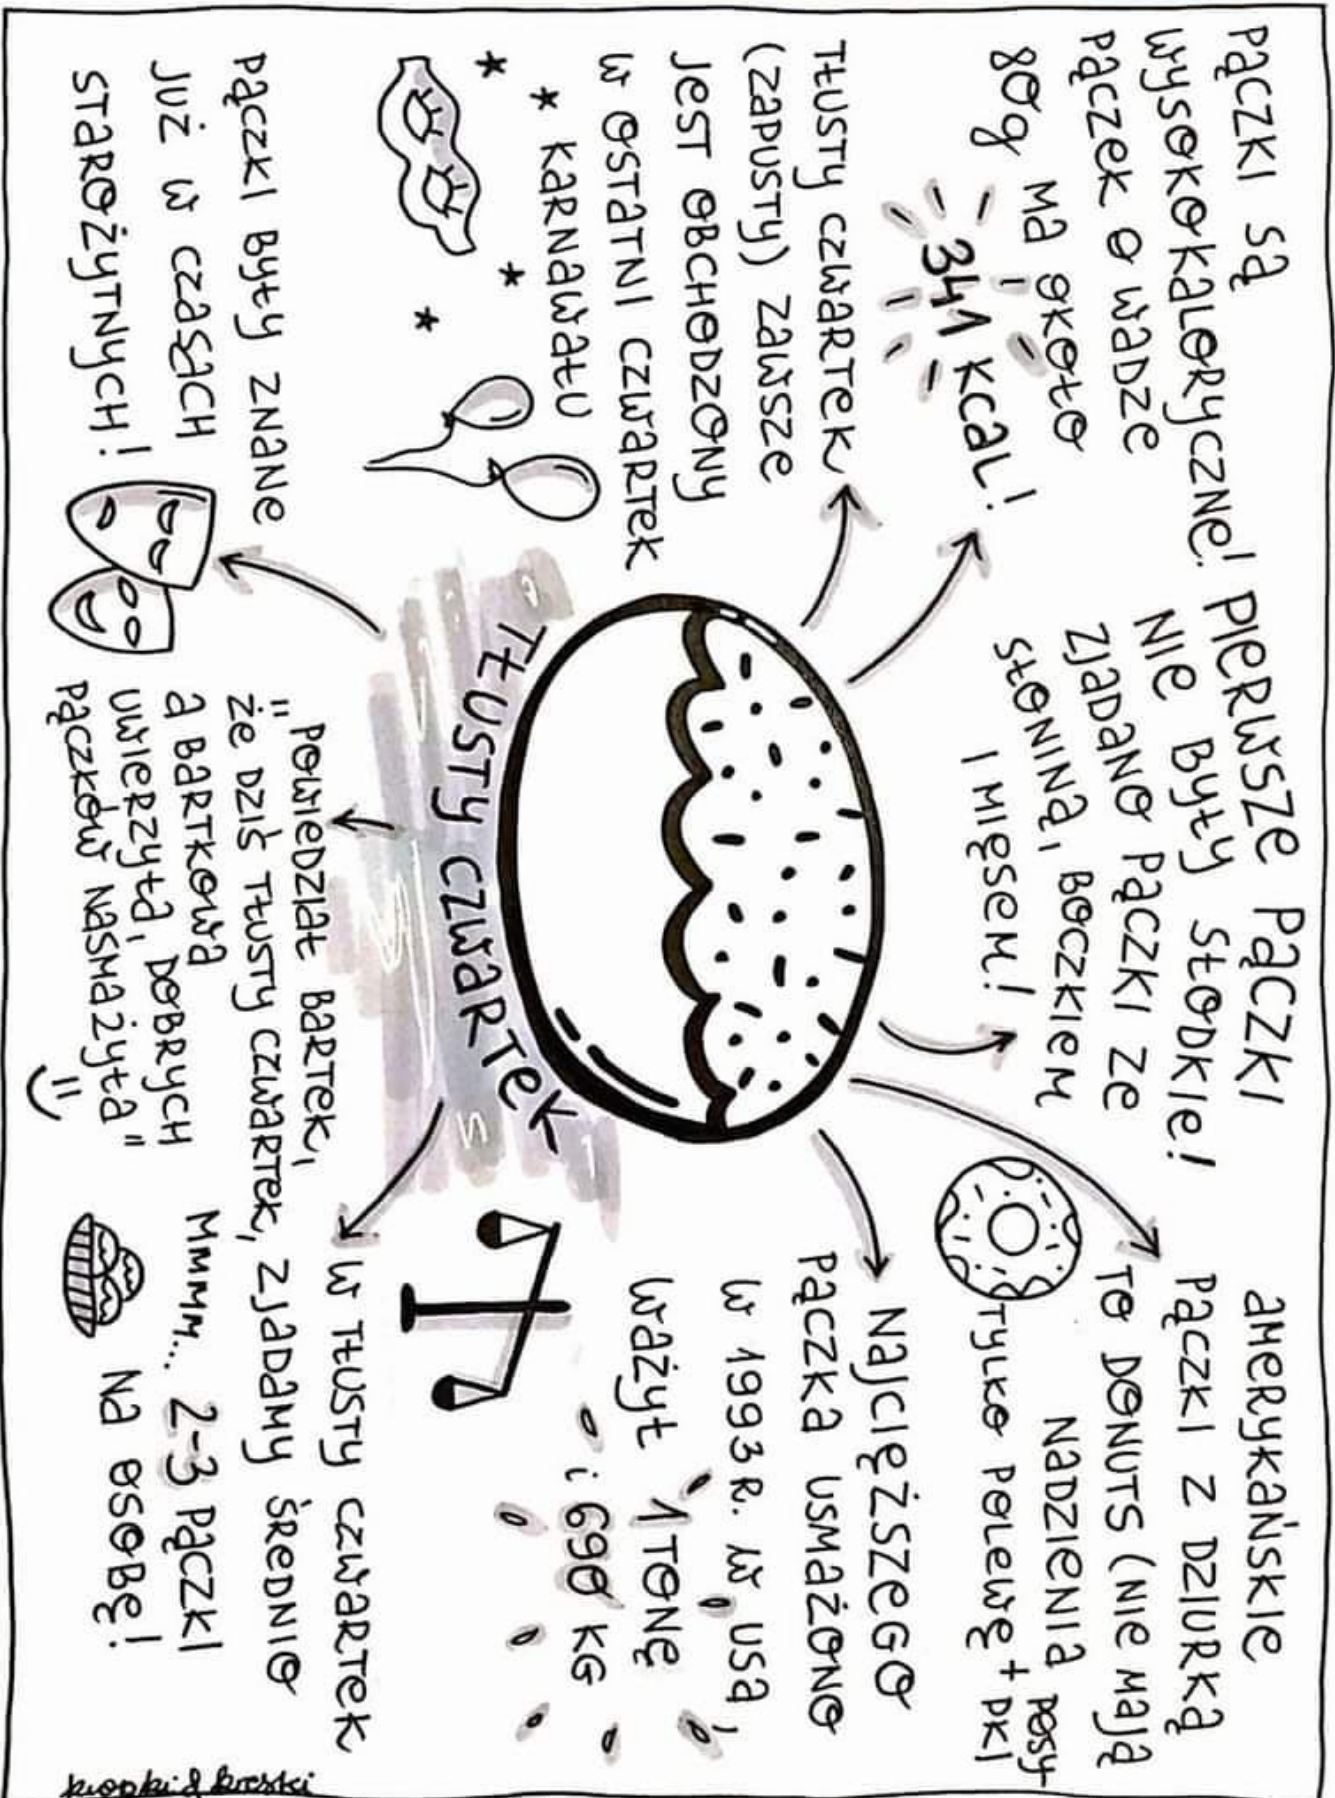 Pączki są
wysokokaloryczne!
pączek o wadze
80g ma około
341 kcal!
Pierwsze pączki
nie były słodkie!
Zjadano pączki ze
słoniną, boczkiem
i mięsem!
amerykańskie
pączki z dziurką
to donuts (nie mają
nadzienia
tylko polewę + posy-
pki
Tłusty czwartek
(zapusty) zawsze
jest obchodzony
w ostatni czwartek
karnawału
Najcięższego
pączka usmażono
w 1993 r. w USA,
ważył 1 tonę
i 690 kg
Tłusty czwartek
Pączki były znane
już w czasach
starożytnych!
"Powiedział Bartek,
że dziś tłusty czwartek,
a Bartkowa
uwierzyła, dobrych
pączków nasmażyła"
w tłusty czwartek
zjadamy średnio
Mmmm... 2-3 pączki
na osobę!
kropki & kreski